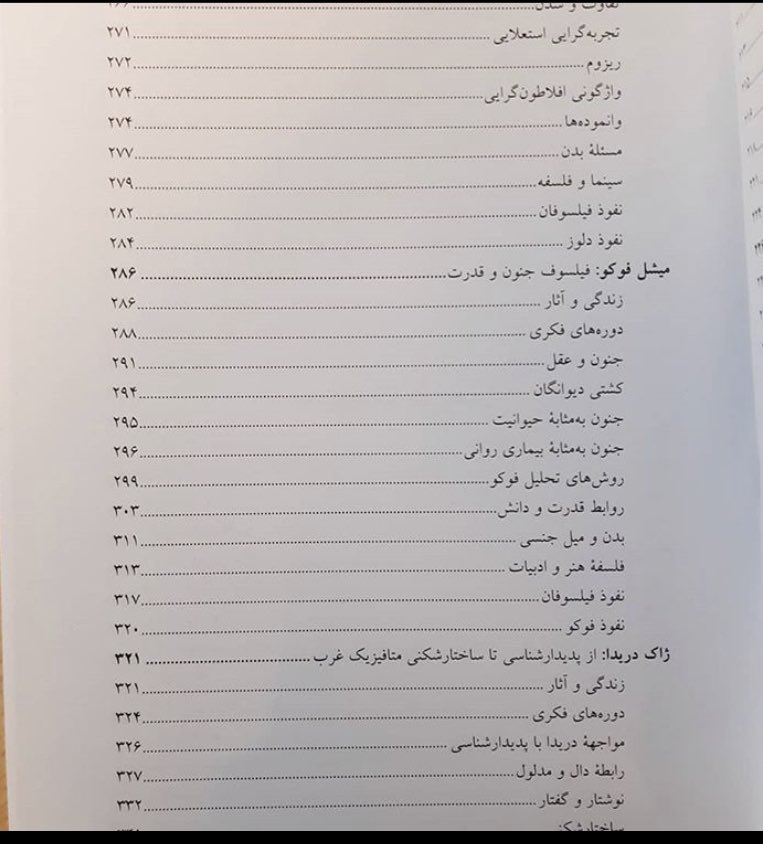 تفاوت و شدن
تجربه‌گرایی استعلایی ........ ۲۷۱
ریزوم ........ ۲۷۲
واژگونی افلاطون‌گرایی ........ ۲۷۴
وانموده‌ها ........ ۲۷۴
مسئلهٔ بدن ........ ۲۷۷
سینما و فلسفه ........ ۲۷۹
نفوذ فیلسوفان ........ ۲۸۲
نفوذ دلوز ........ ۲۸۴
میشل فوکو: فیلسوف جنون و قدرت ........ ۲۸۶
زندگی و آثار ........ ۲۸۶
دوره‌های فکری ........ ۲۸۸
جنون و عقل ........ ۲۹۱
کشتی دیوانگان ........ ۲۹۴
جنون به‌مثابهٔ حیوانیت ........ ۲۹۵
جنون به‌مثابهٔ بیماری روانی ........ ۲۹۶
روش‌های تحلیل فوکو ........ ۲۹۹
روابط قدرت و دانش ........ ۳۰۳
بدن و میل جنسی ........ ۳۱۱
فلسفهٔ هنر و ادبیات ........ ۳۱۳
نفوذ فیلسوفان ........ ۳۱۷
نفوذ فوکو ........ ۳۲۰
ژاک دریدا: از پدیدارشناسی تا ساختارشکنی متافیزیک غرب ........ ۳۲۱
زندگی و آثار ........ ۳۲۱
دوره‌های فکری ........ ۳۲۴
مواجههٔ دریدا با پدیدارشناسی ........ ۳۲۶
رابطهٔ دال و مدلول ........ ۳۲۷
نوشتار و گفتار ........ ۳۳۲
ساختارشکنی